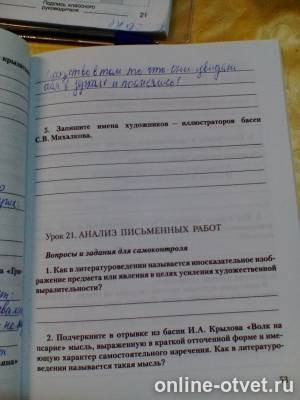 Подпись классного
руководителя
21
в том то что они увидели
в зеркале и
3. Запишите имена художников – иллюстраторов басен
С.В. Михалкова.
Урок 21. АНАЛИЗ ПИСЬМЕННЫХ РАБОТ
Вопросы и задания для самоконтроля
1. Как в литературоведении называется иносказательное изоб-
ражение предмета или явления в целях усиления художественной
выразительности?
2. Подчеркните в отрывке из басни И.А. Крылова «Волк на
псарне» мысль, выраженную в краткой отточенной форме и име-
ющую характер самостоятельного изречения. Как в литературо-
ведении называется такая мысль?
53
online-otvet.ru